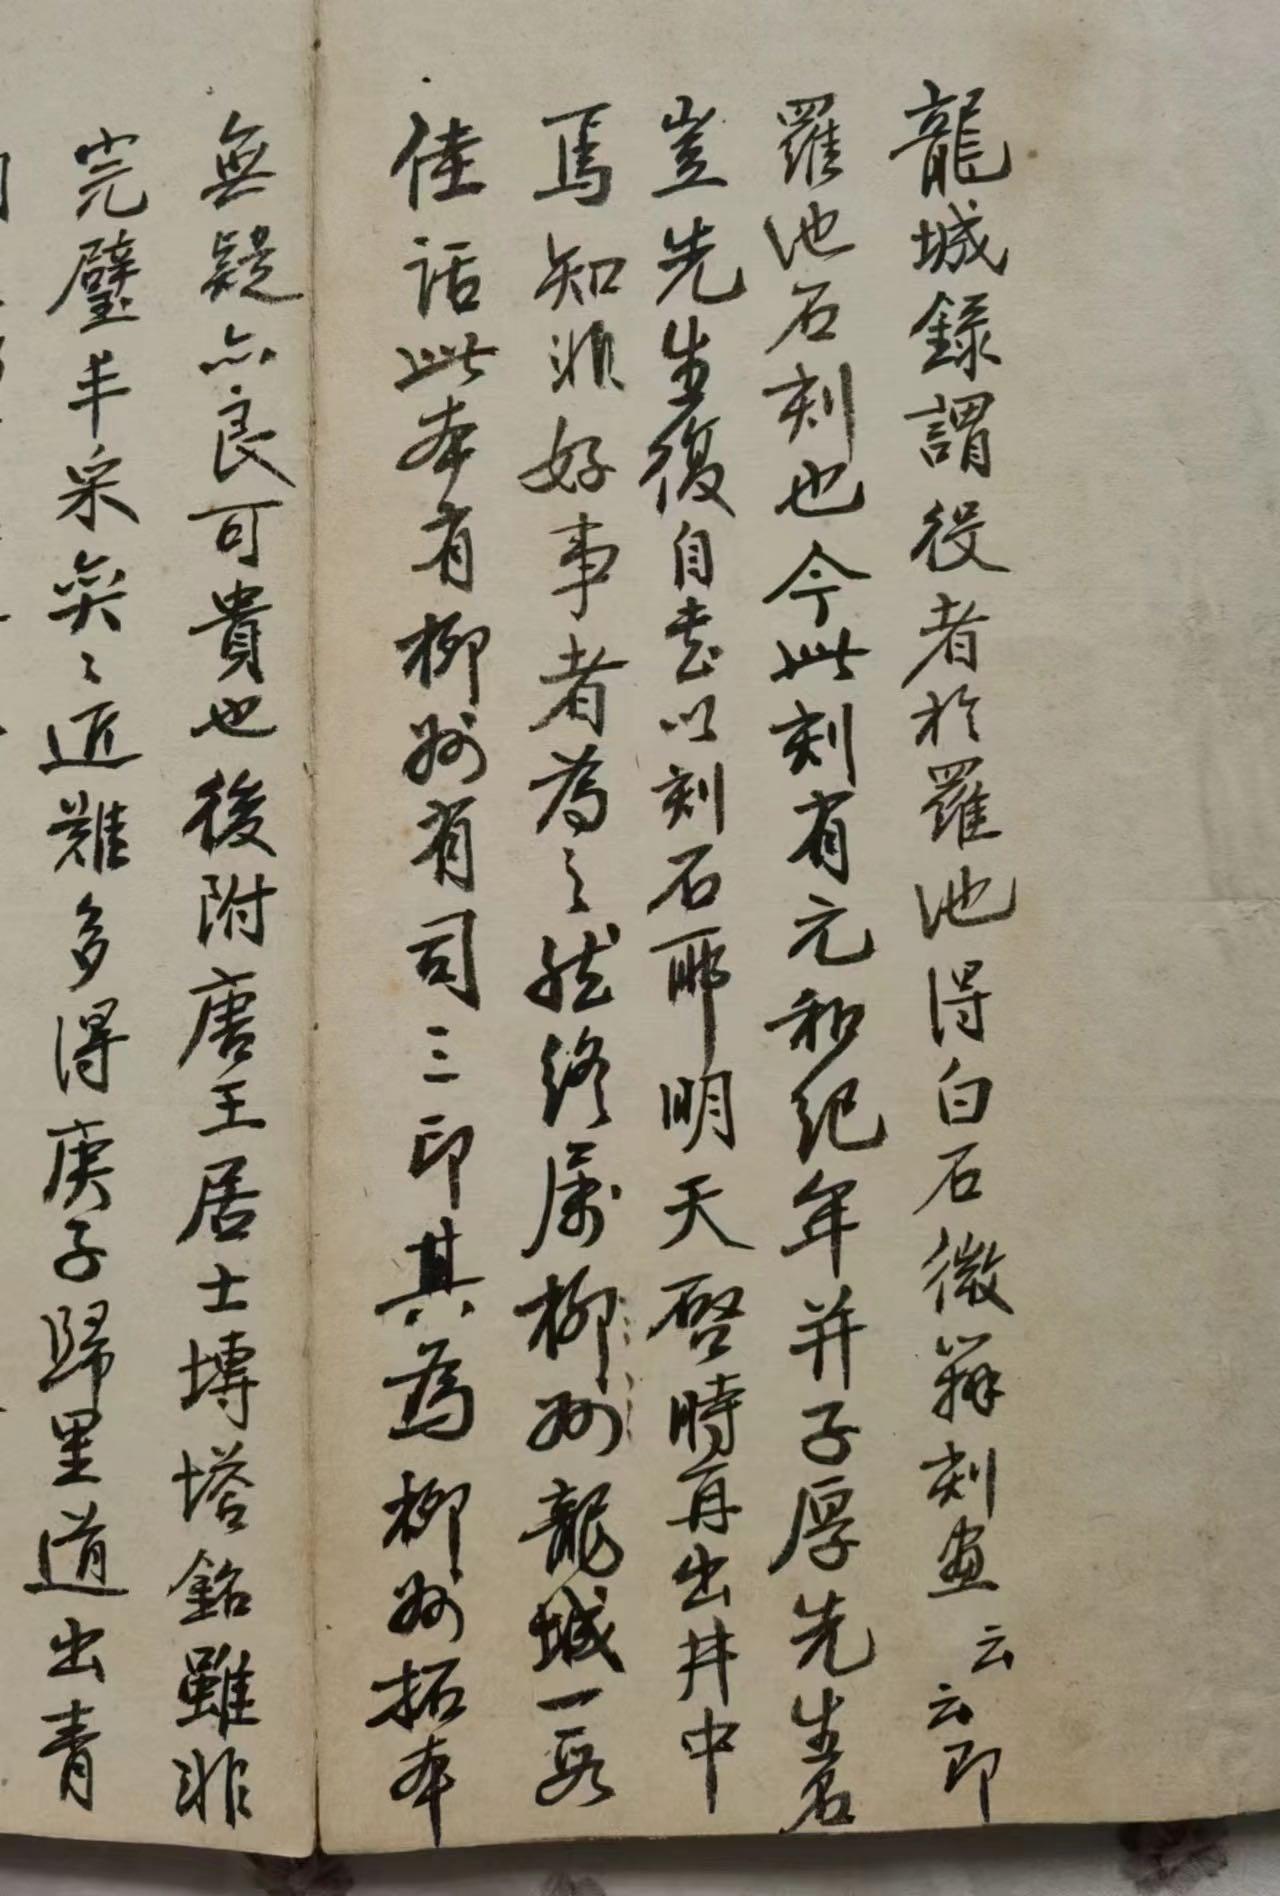 龍城錄謂役者於羅池得白石微辨刻畫云云即
羅池石刻也今此刻有元和紀年并子厚先生名
豈先生復自書以刻石耶明天啓時再出井中
焉知非好事者為之然終屬柳州龍城一段
佳話此本有柳州有司三印其為柳州拓本
無疑亦良可貴也後附唐王居士塼塔銘雖非
完璧丰采奕〻近難多得庚子歸里道出青